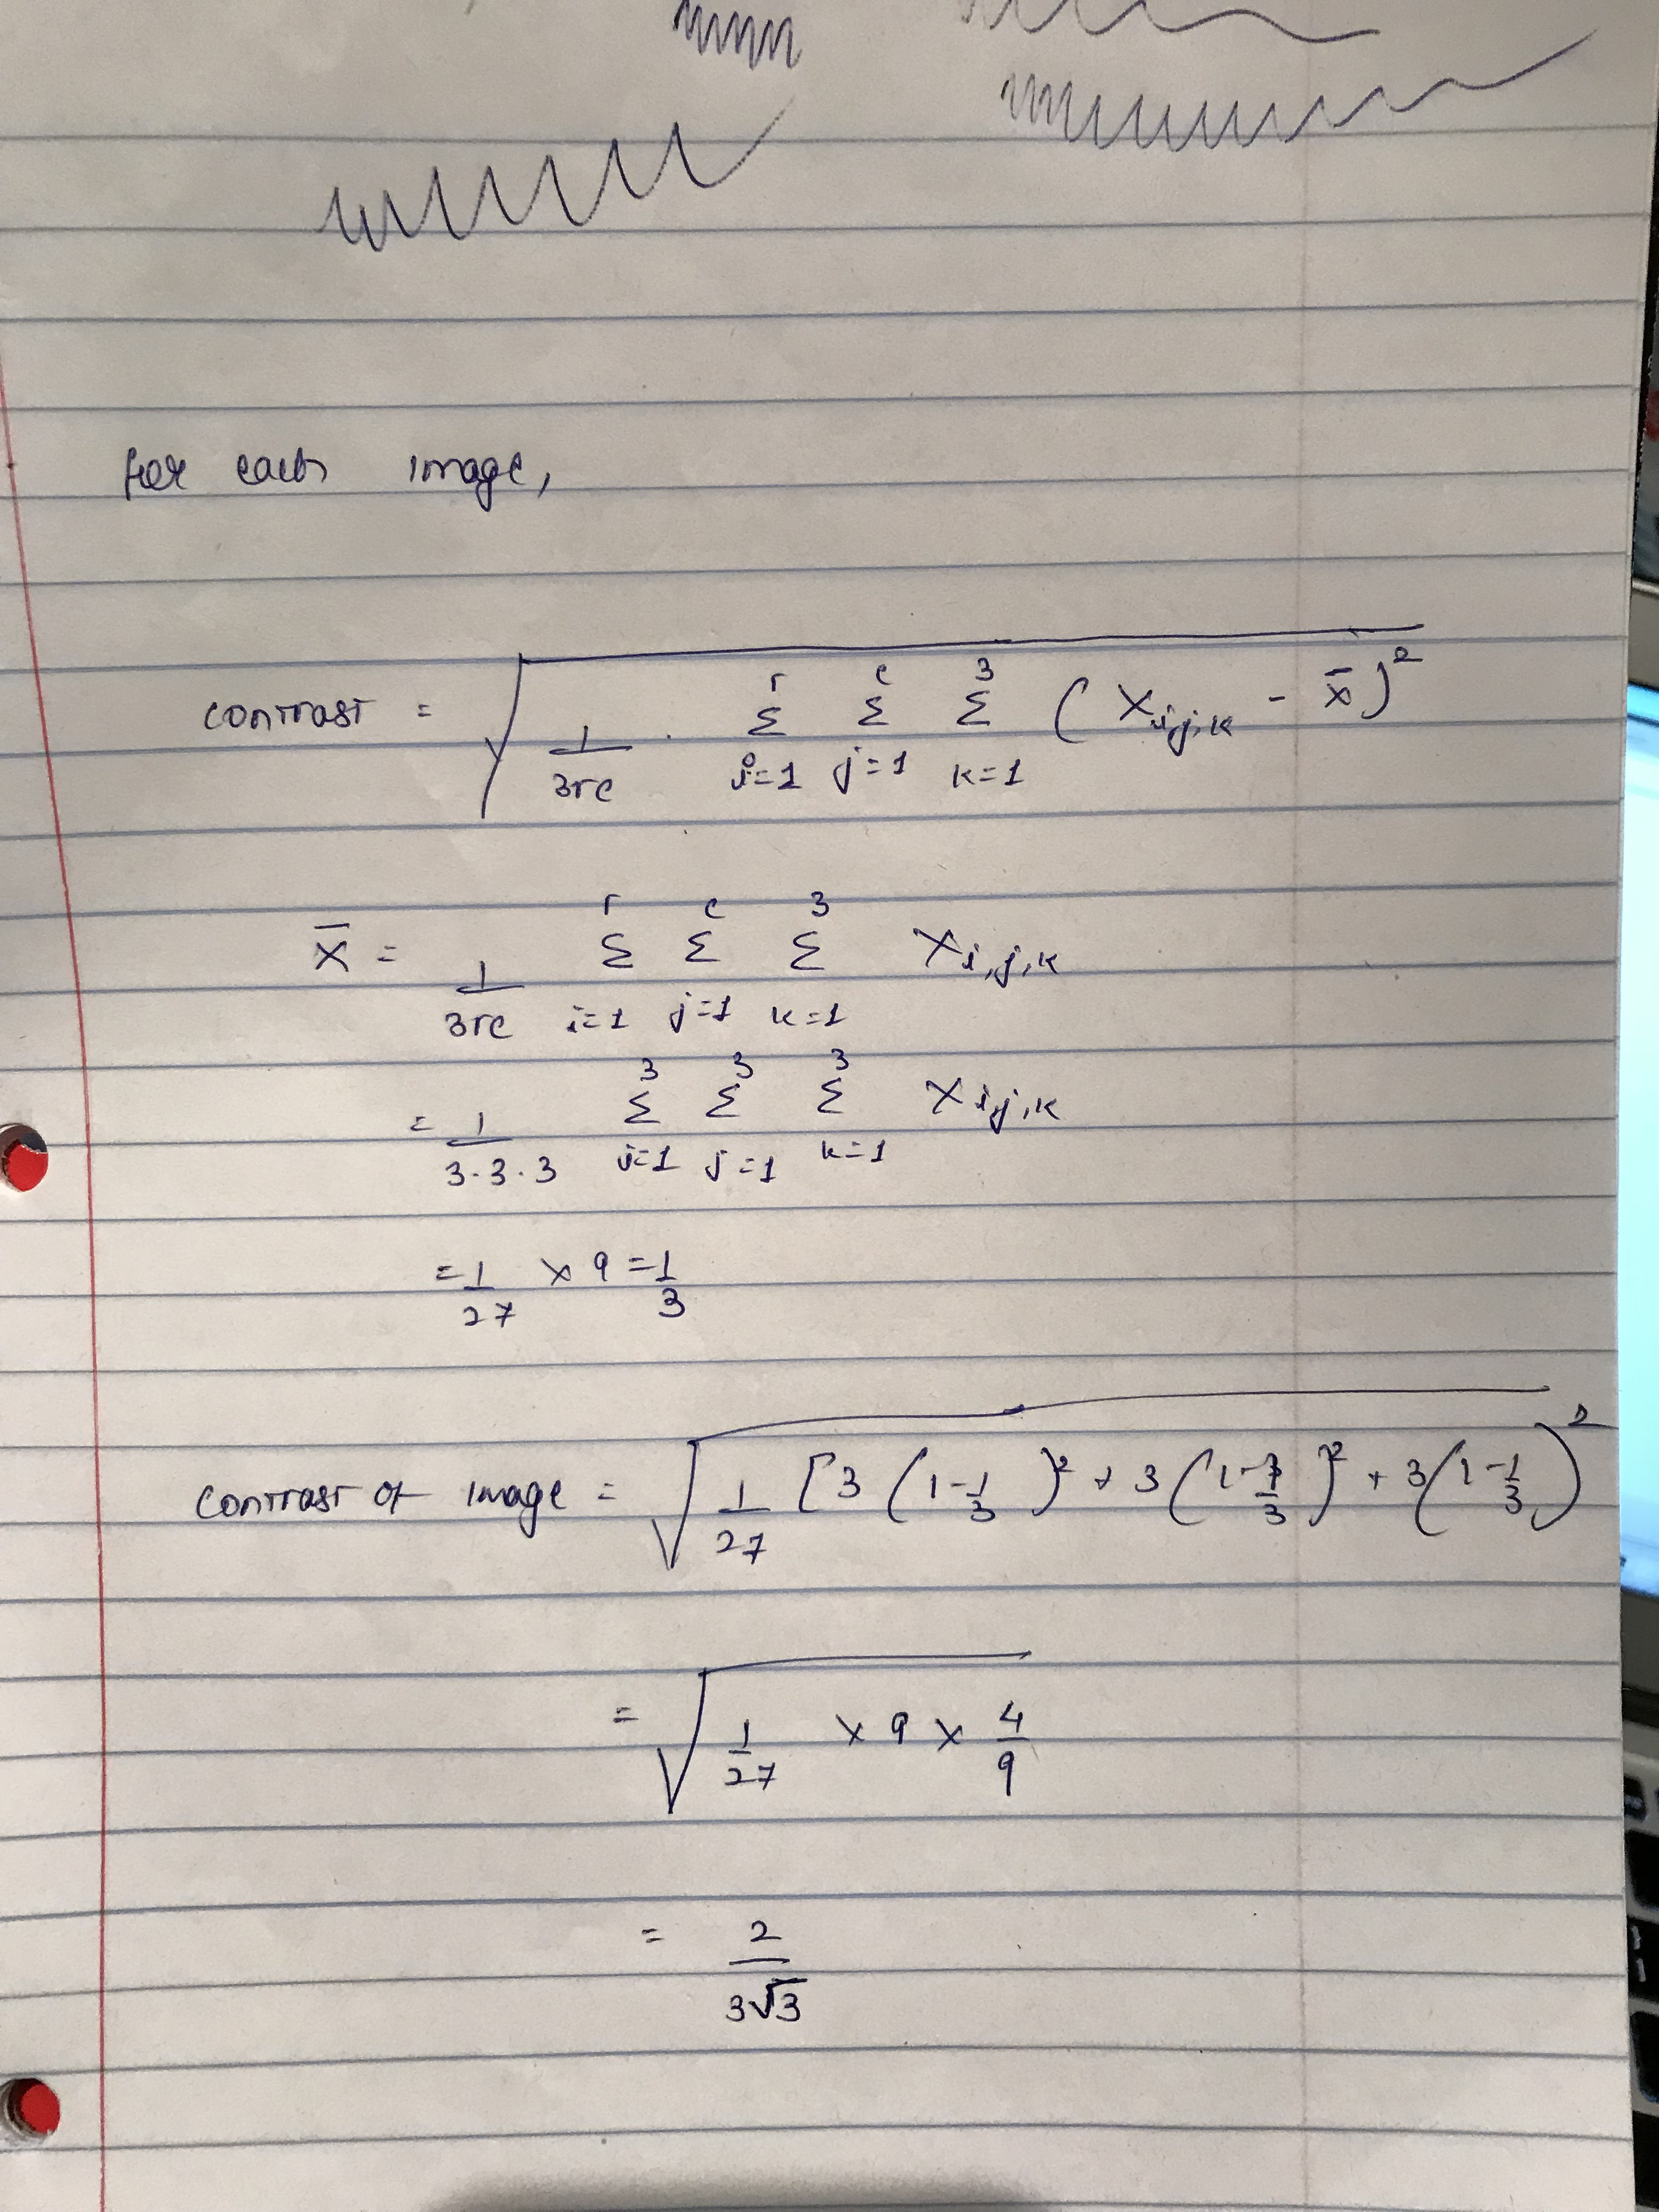 for each image,
contrast = √( 1/3rc · Σ_{i=1}^{r} Σ_{j=1}^{c} Σ_{k=1}^{3} ( X_{i,j,k} - x̄ )² )
x̄ = 1/3rc Σ_{i=1}^{r} Σ_{j=1}^{c} Σ_{k=1}^{3} X_{i,j,k}
= 1/3·3·3 Σ_{i=1}^{3} Σ_{j=1}^{3} Σ_{k=1}^{3} X_{i,j,k}
= 1/27 × 9 = 1/3
contrast of image = √( 1/27 [ 3 ( 1 - 1/3 )² + 3 ( 1 - 1/3 )² + 3 ( 1 - 1/3 )²
= √( 1/27 × 9 × 4/9 )
= 2/3√3